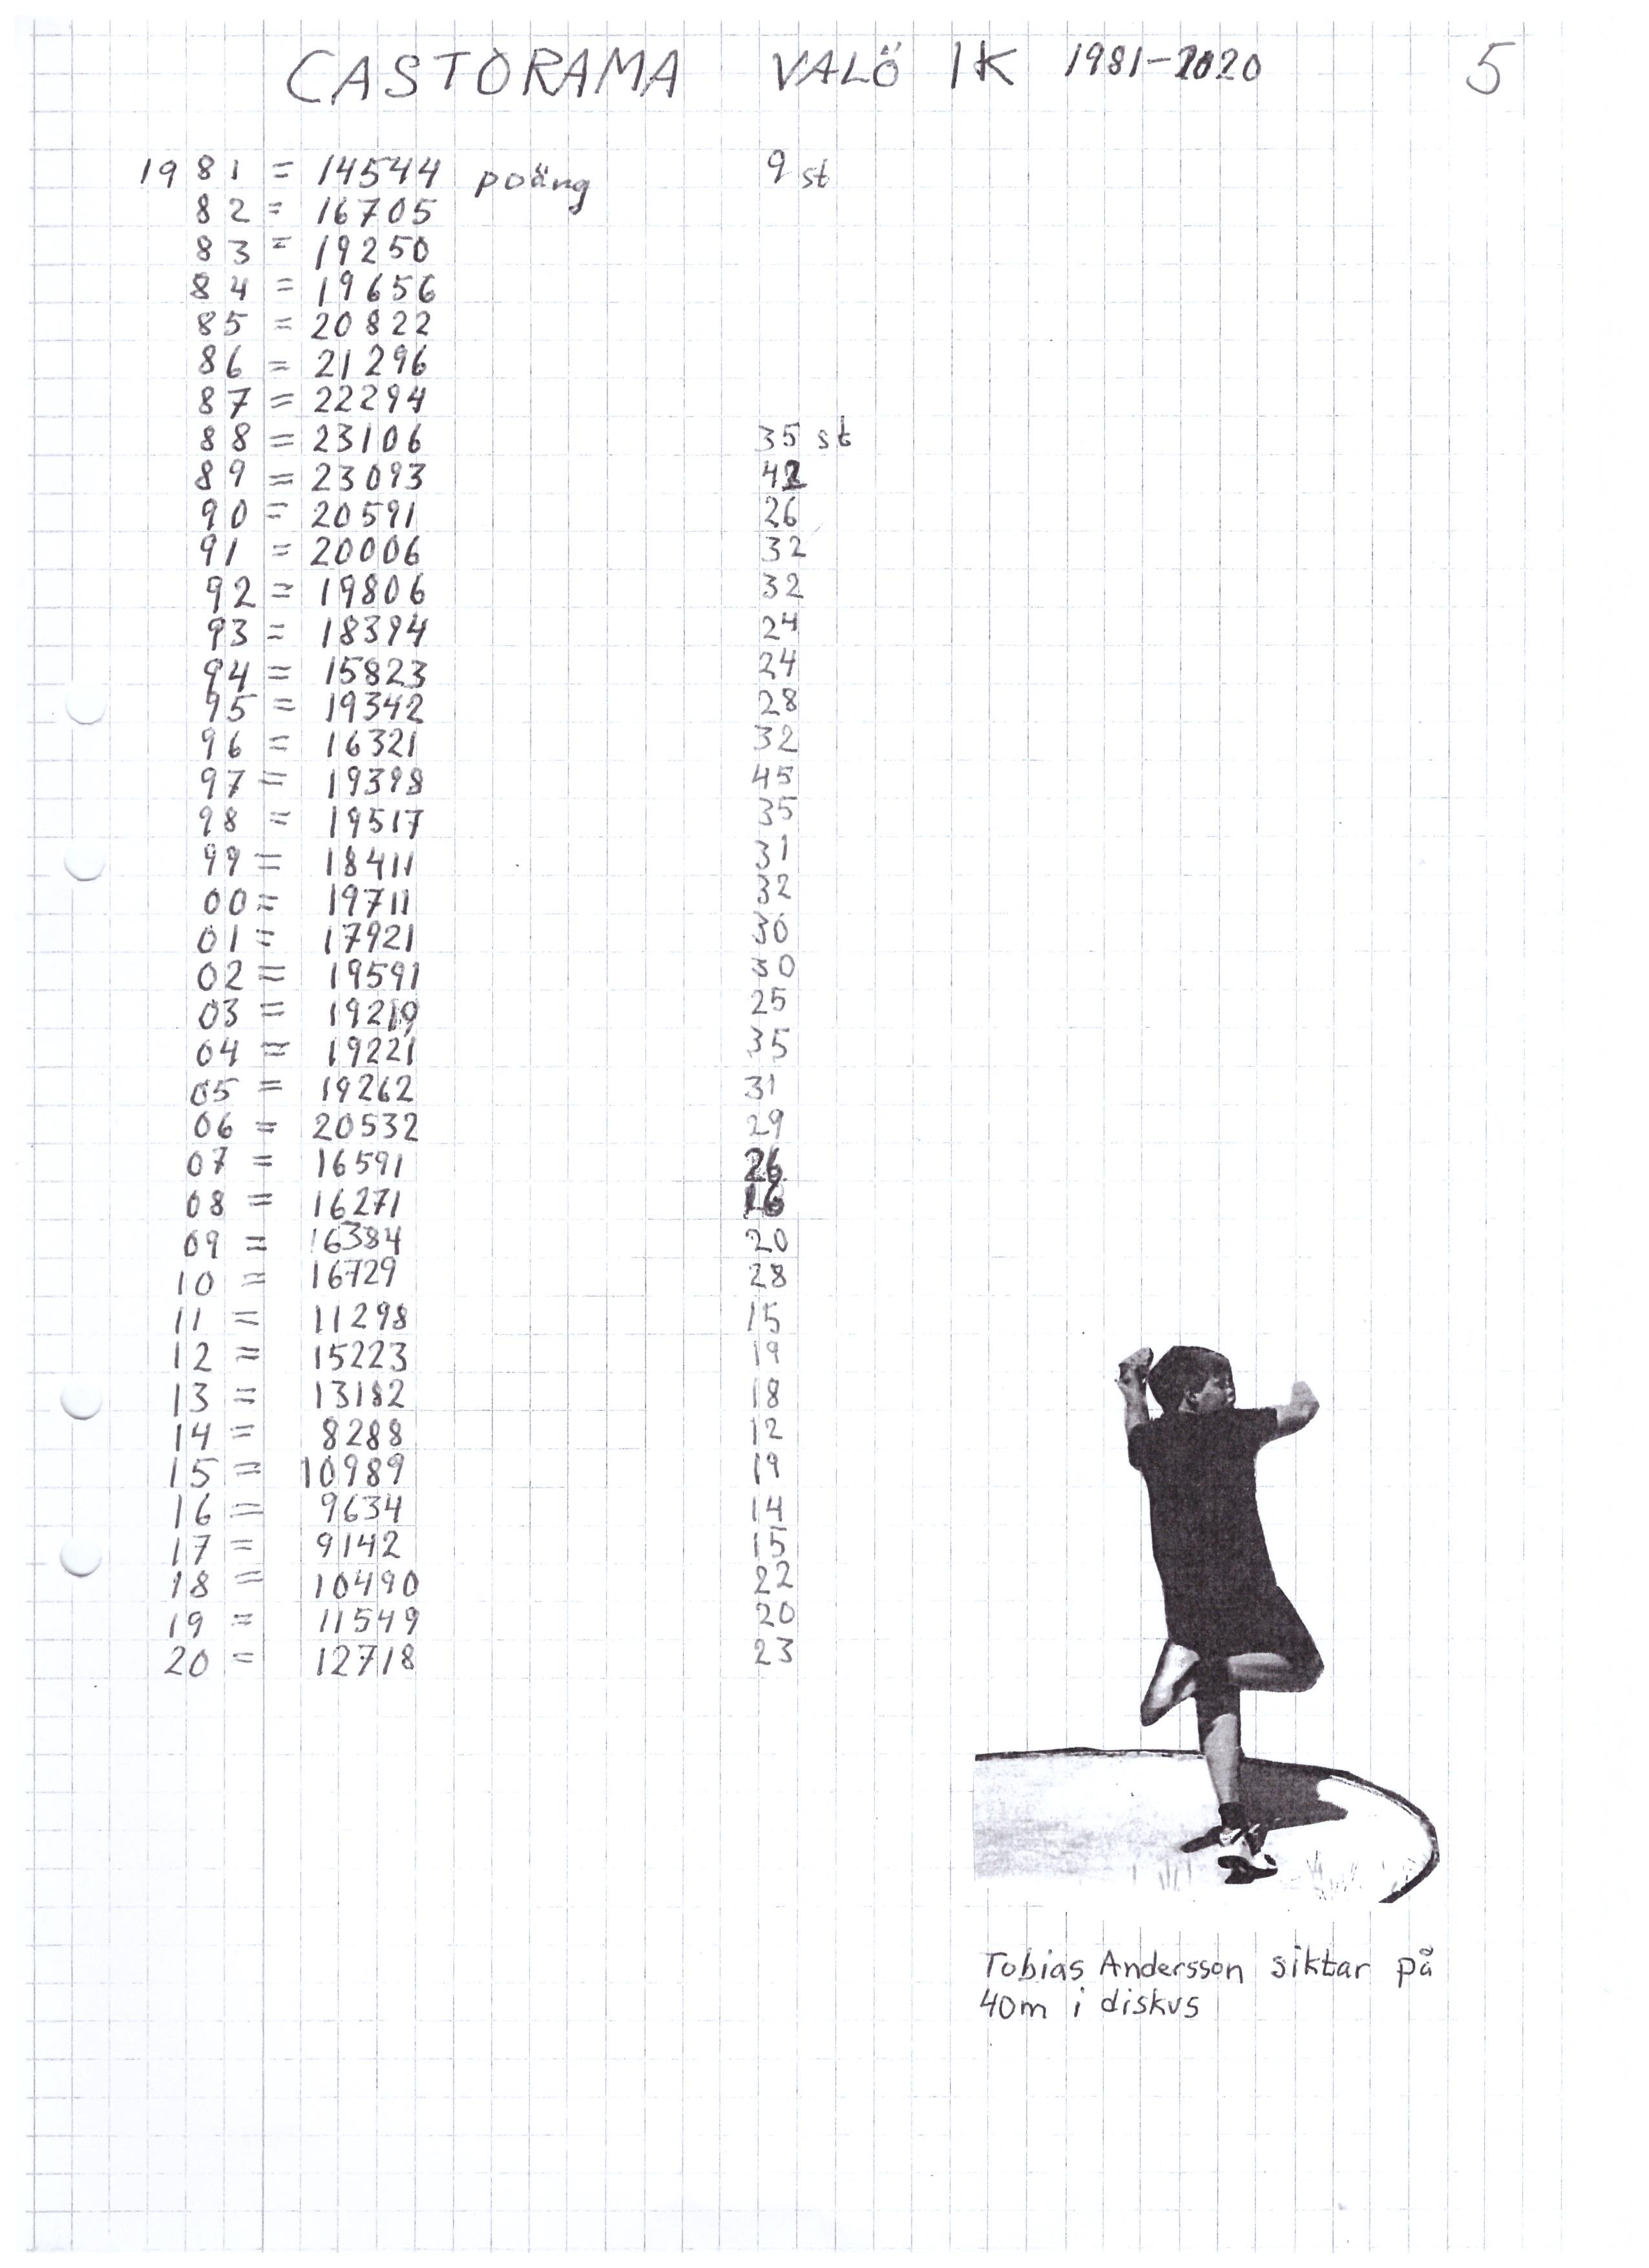 CASTORAMA VALÖ IK 1981-2020 5
1981 = 14544 poäng 9 st
82 = 16705
83 = 19250
84 = 19656
85 = 20822
86 = 21296
87 = 22294
88 = 23106 35 st
89 = 23093 42
90 = 20591 26
91 = 20006 32
92 = 19806 32
93 = 18394 24
94 = 15823 24
95 = 19342 28
96 = 16321 32
97 = 19398 45
98 = 19517 35
99 = 18411 31
00 = 19711 32
01 = 17921 30
02 = 19591 30
03 = 19219 25
04 = 19221 35
05 = 19262 31
06 = 20532 29
07 = 16591 26
08 = 16271 16
09 = 16384 20
10 = 16729 28
11 = 11298 15
12 = 15223 19
13 = 13182 18
14 = 8288 12
15 = 10989 19
16 = 9634 14
17 = 9142 15
18 = 10490 22
19 = 11549 20
20 = 12718 23
Tobias Andersson siktar på
40m i diskus